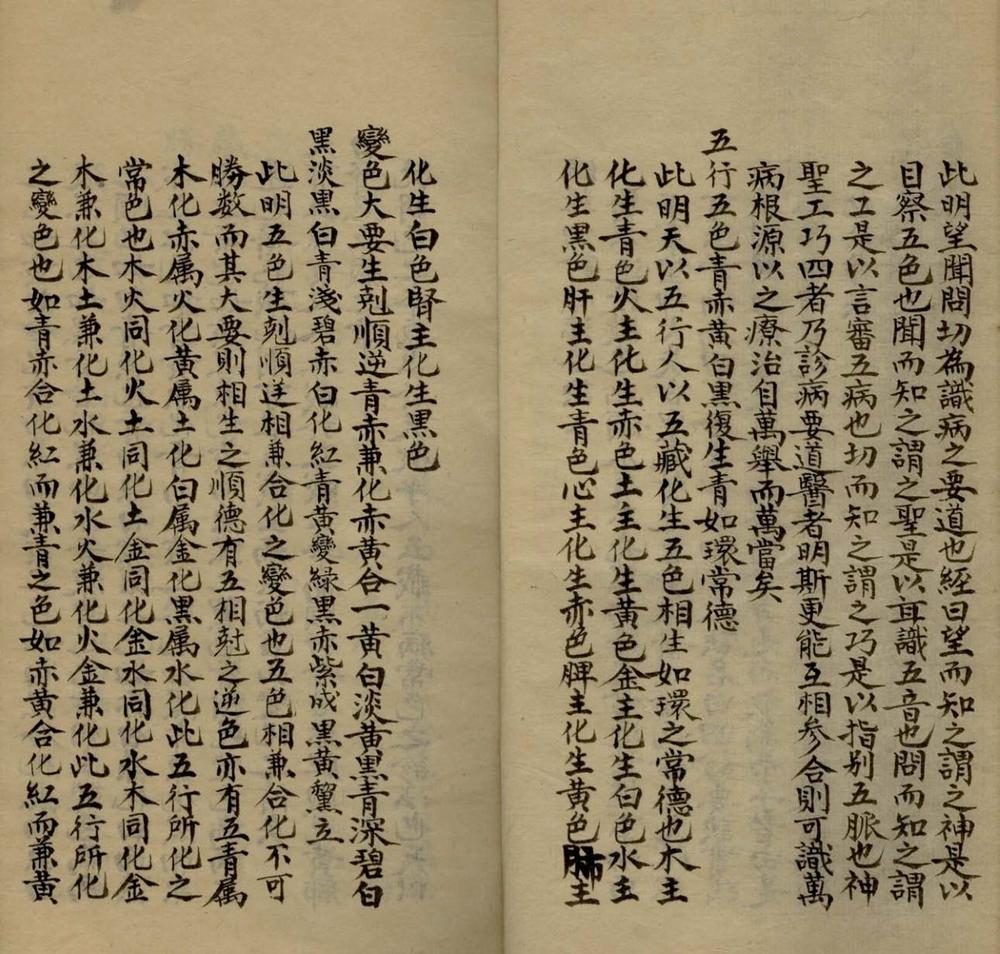 此明望聞問切為識病之要道也經曰望而知之謂之神是以
目察五色也聞而知之謂之聖是以耳識五音也問而知之謂
之工是以言審五病也切而知之謂之巧是以指别五脈也神
聖工巧四者乃診病要道醫者明斯更能互相参合則可識萬
病根源以之療治自萬舉而萬當矣
五行五色青赤黃白黑復生青如環常德
此明天以五行人以五藏化生五色相生如環之常德也木主
化生青色火主化生赤色土主化生黃色金主化生白色水主
化生黑色肝主化生青色心主化生赤色脾主化生黃色肺主
化生白色腎主化生黑色
變色大要生剋順逆青赤兼化赤黃合一黃白淡黃黑青深碧白
黑淡黑白青淺碧赤白化紅青黃變緑黑赤紫成黑黃黧立
此明五色生剋順逆相兼合化之變色也五色相兼合化不可
勝數而其大要則相生之順德有五相尅之逆色亦有五青属
木化赤属火化黃属土化白属金化黑属水化此五行所化之
常色也木火同化火土同化土金同化金水同化水木同化金
木兼化木土兼化土水兼化水火兼化火金兼化此五行所化
之變色也如青赤合化紅而兼青之色如赤黃合化紅而兼黃